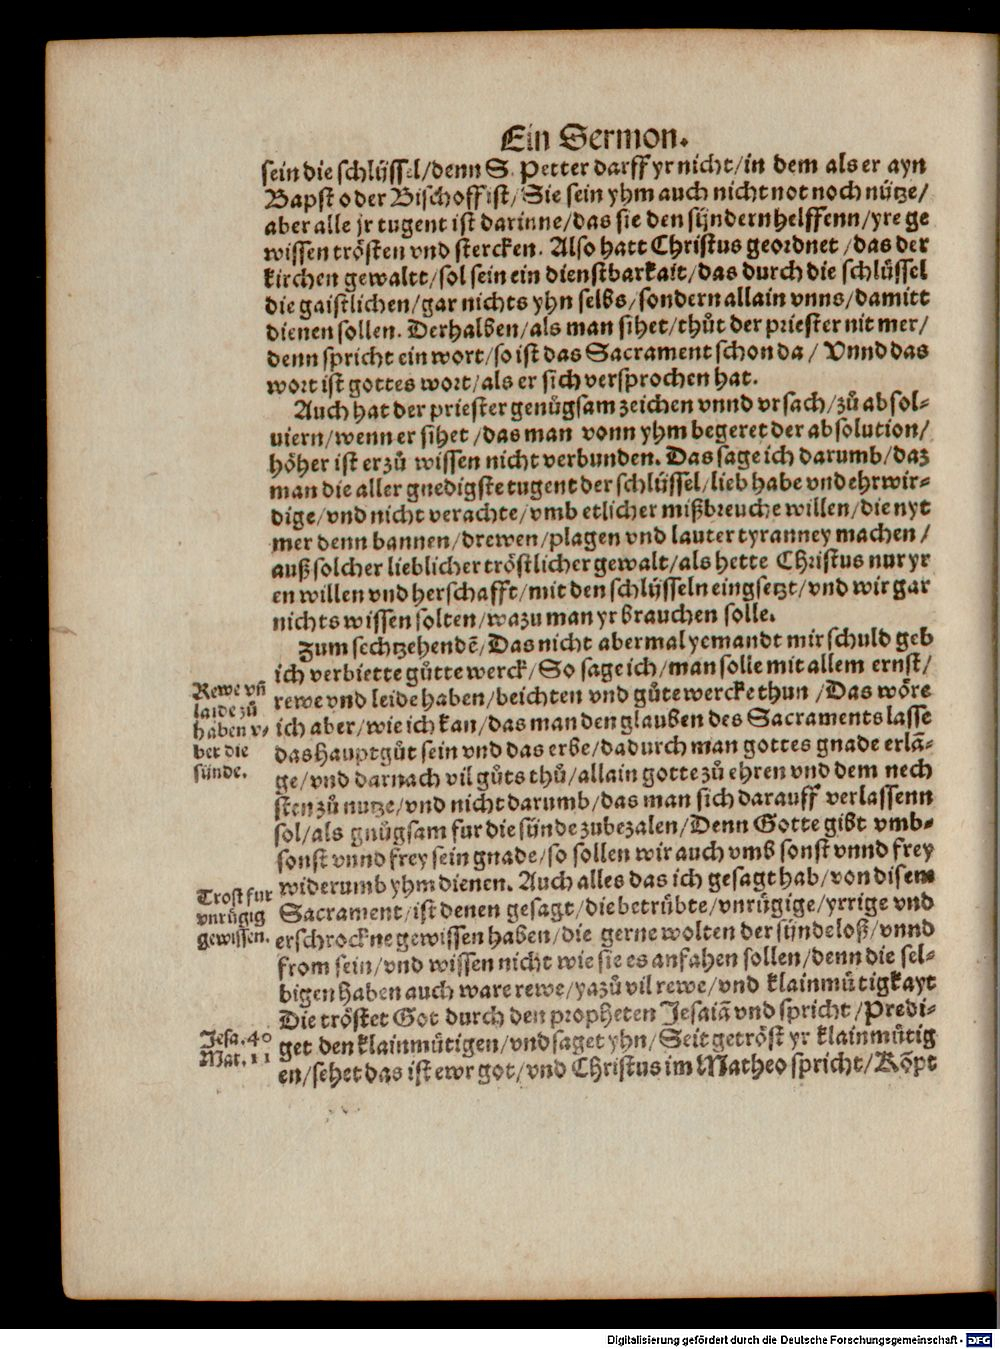 Ein Sermon.
sein die schlüssel/denn S. Petter darff yr nicht/in dem als er ayn
Bapst oder Bischoff ist/Sie sein yhm auch nicht not noch nütze/
aber alle jr tugent ist darinne/das sie den sündern helffenn/yre ge
wissen trösten vnd stercken. Also hatt Christus geordnet/das der
kirchen gewaltt/sol sein ein dienstbarkait/das durch die schlüssel
die gaistlichen/gar nichts yhn selbs/sondern allain vnns/damitt
dienen sollen. Derhalben/als man sihet/thůt der priester nit mer/
denn spricht ein wort/so ist das Sacrament schon da/ Vnnd das
wort ist gottes wort/als er sich versprochen hat.
Auch hat der priester genůgsam zeichen vnnd vrsach/zů absol-
uiern/wenn er sihet/das man vonn yhm begeret der absolution/
höher ist er zů wissen nicht verbunden. Das sage ich darumb/daz
man die aller gnedigste tugent der schlüssel/lieb habe vnd ehrwir-
dige/vnd nicht verachte/vmb etlicher mißbreuche willen/die nyt
mer denn bannen/drewen/plagen vnd lauter tyranney machen/
auß solcher lieblicher tröstlicher gewalt/als hette Christus nur yr
en willen vnd herschafft/mit den schlüsseln eingsetzt/vnd wir gar
nichts wissen solten/wazu man yr brauchen solle.
Zum sechtzehendē/Das nicht abermal yemandt mir schuld geb
ich verbiette gůtte werck/So sage ich/man solle mit allem ernst/
Rewe vn̄
laide zů
haben v-
ber die
sünde.
rewe vnd leide haben/beichten vnd gůte wercke thun/Das wöre
ich aber/wie ich kan/das man den glauben des Sacraments lasse
das hauptgůt sein vnd das erbe/dadurch man gottes gnade erlā-
ge/vnd darnach vil gůts thů/allain gotte zů ehren vnd dem nech
sten zů nutze/vnd nicht darumb/das man sich darauff verlassenn
sol/als gnůgsam fur die sünde zubezalen/Denn Gotte gibt vmb-
sonst vnnd frey sein gnade/so sollen wir auch vmb sonst vnnd frey
widerumb yhm dienen. Auch alles das ich gesagt hab/von disem
Trost fur
vnrůgig
gewissen.
Sacrament/ist denen gesagt/die betrübte/vnrůgige/yrrige vnd
erschrockne gewissen haben/die gerne wolten der sünde loß/vnnd
from sein/vnd wissen nicht wie sie es anfahen sollen/denn die sel-
bigen haben auch ware rewe/ya zů vil rewe/vnd klainmůtigkayt
Die tröstet Got durch den propheten Jesaiā vnd spricht/Predi-
Jesa. 40
Mat. 11
get den klainmůtigen/vnd saget yhn/Seit getröst yr klainmůtig
en/sehet das ist ewr got/vnd Christus im Matheo spricht/Kōpt
Digitalisierung gefördert durch die Deutsche Forschungsgemeinschaft - DFG